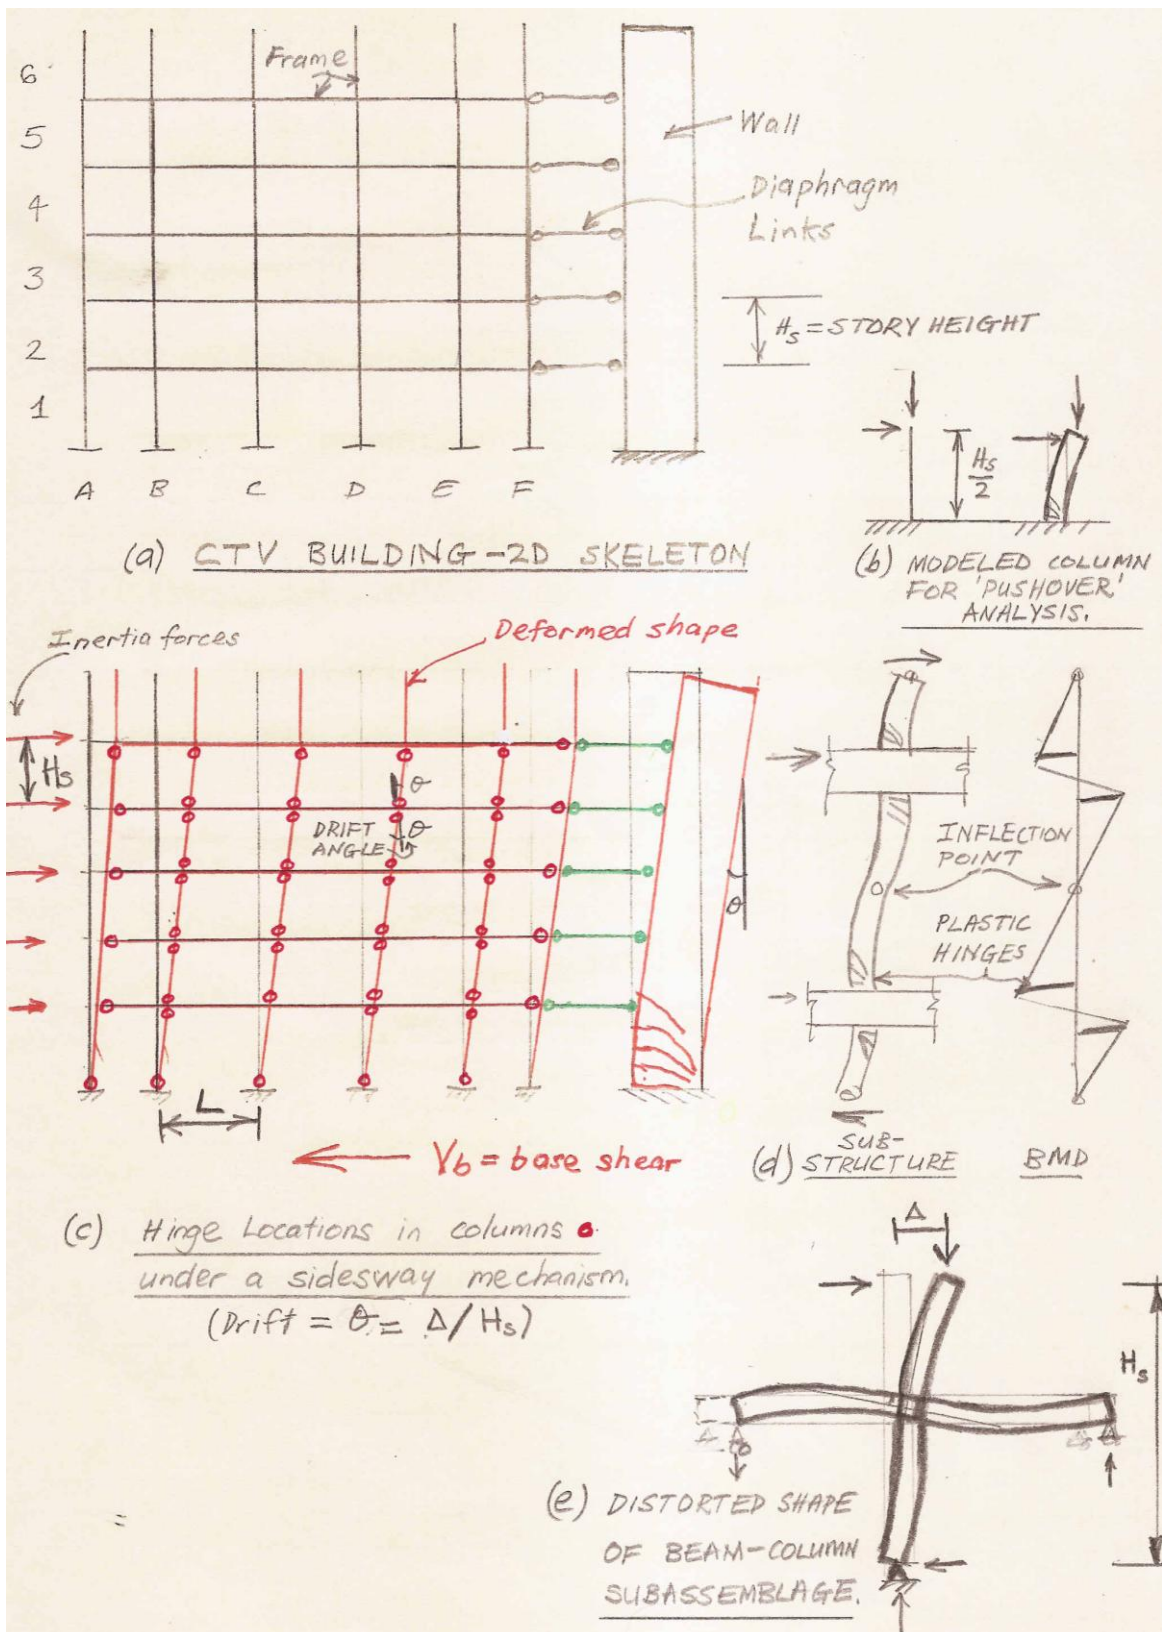 6
Frame
5
Wall
4
Diaphragm
Links
3
Hs = STORY HEIGHT
2
1
Hs
2
A B C D E F
(a) CTV BUILDING - 2D SKELETON
(b) MODELED COLUMN
FOR 'PUSHOVER'
ANALYSIS.
Inertia forces
Deformed shape
Hs
θ
DRIFT
ANGLE
θ
θ
INFLECTION
POINT
PLASTIC
HINGES
L
Vb = base shear
(d) SUB-
STRUCTURE
BMD
(c) Hinge Locations in columns
under a sidesway mechanism.
(Drift = θ = Δ/Hs)
Δ
Hs
(e) DISTORTED SHAPE
OF BEAM-COLUMN
SUBASSEMBLAGE.